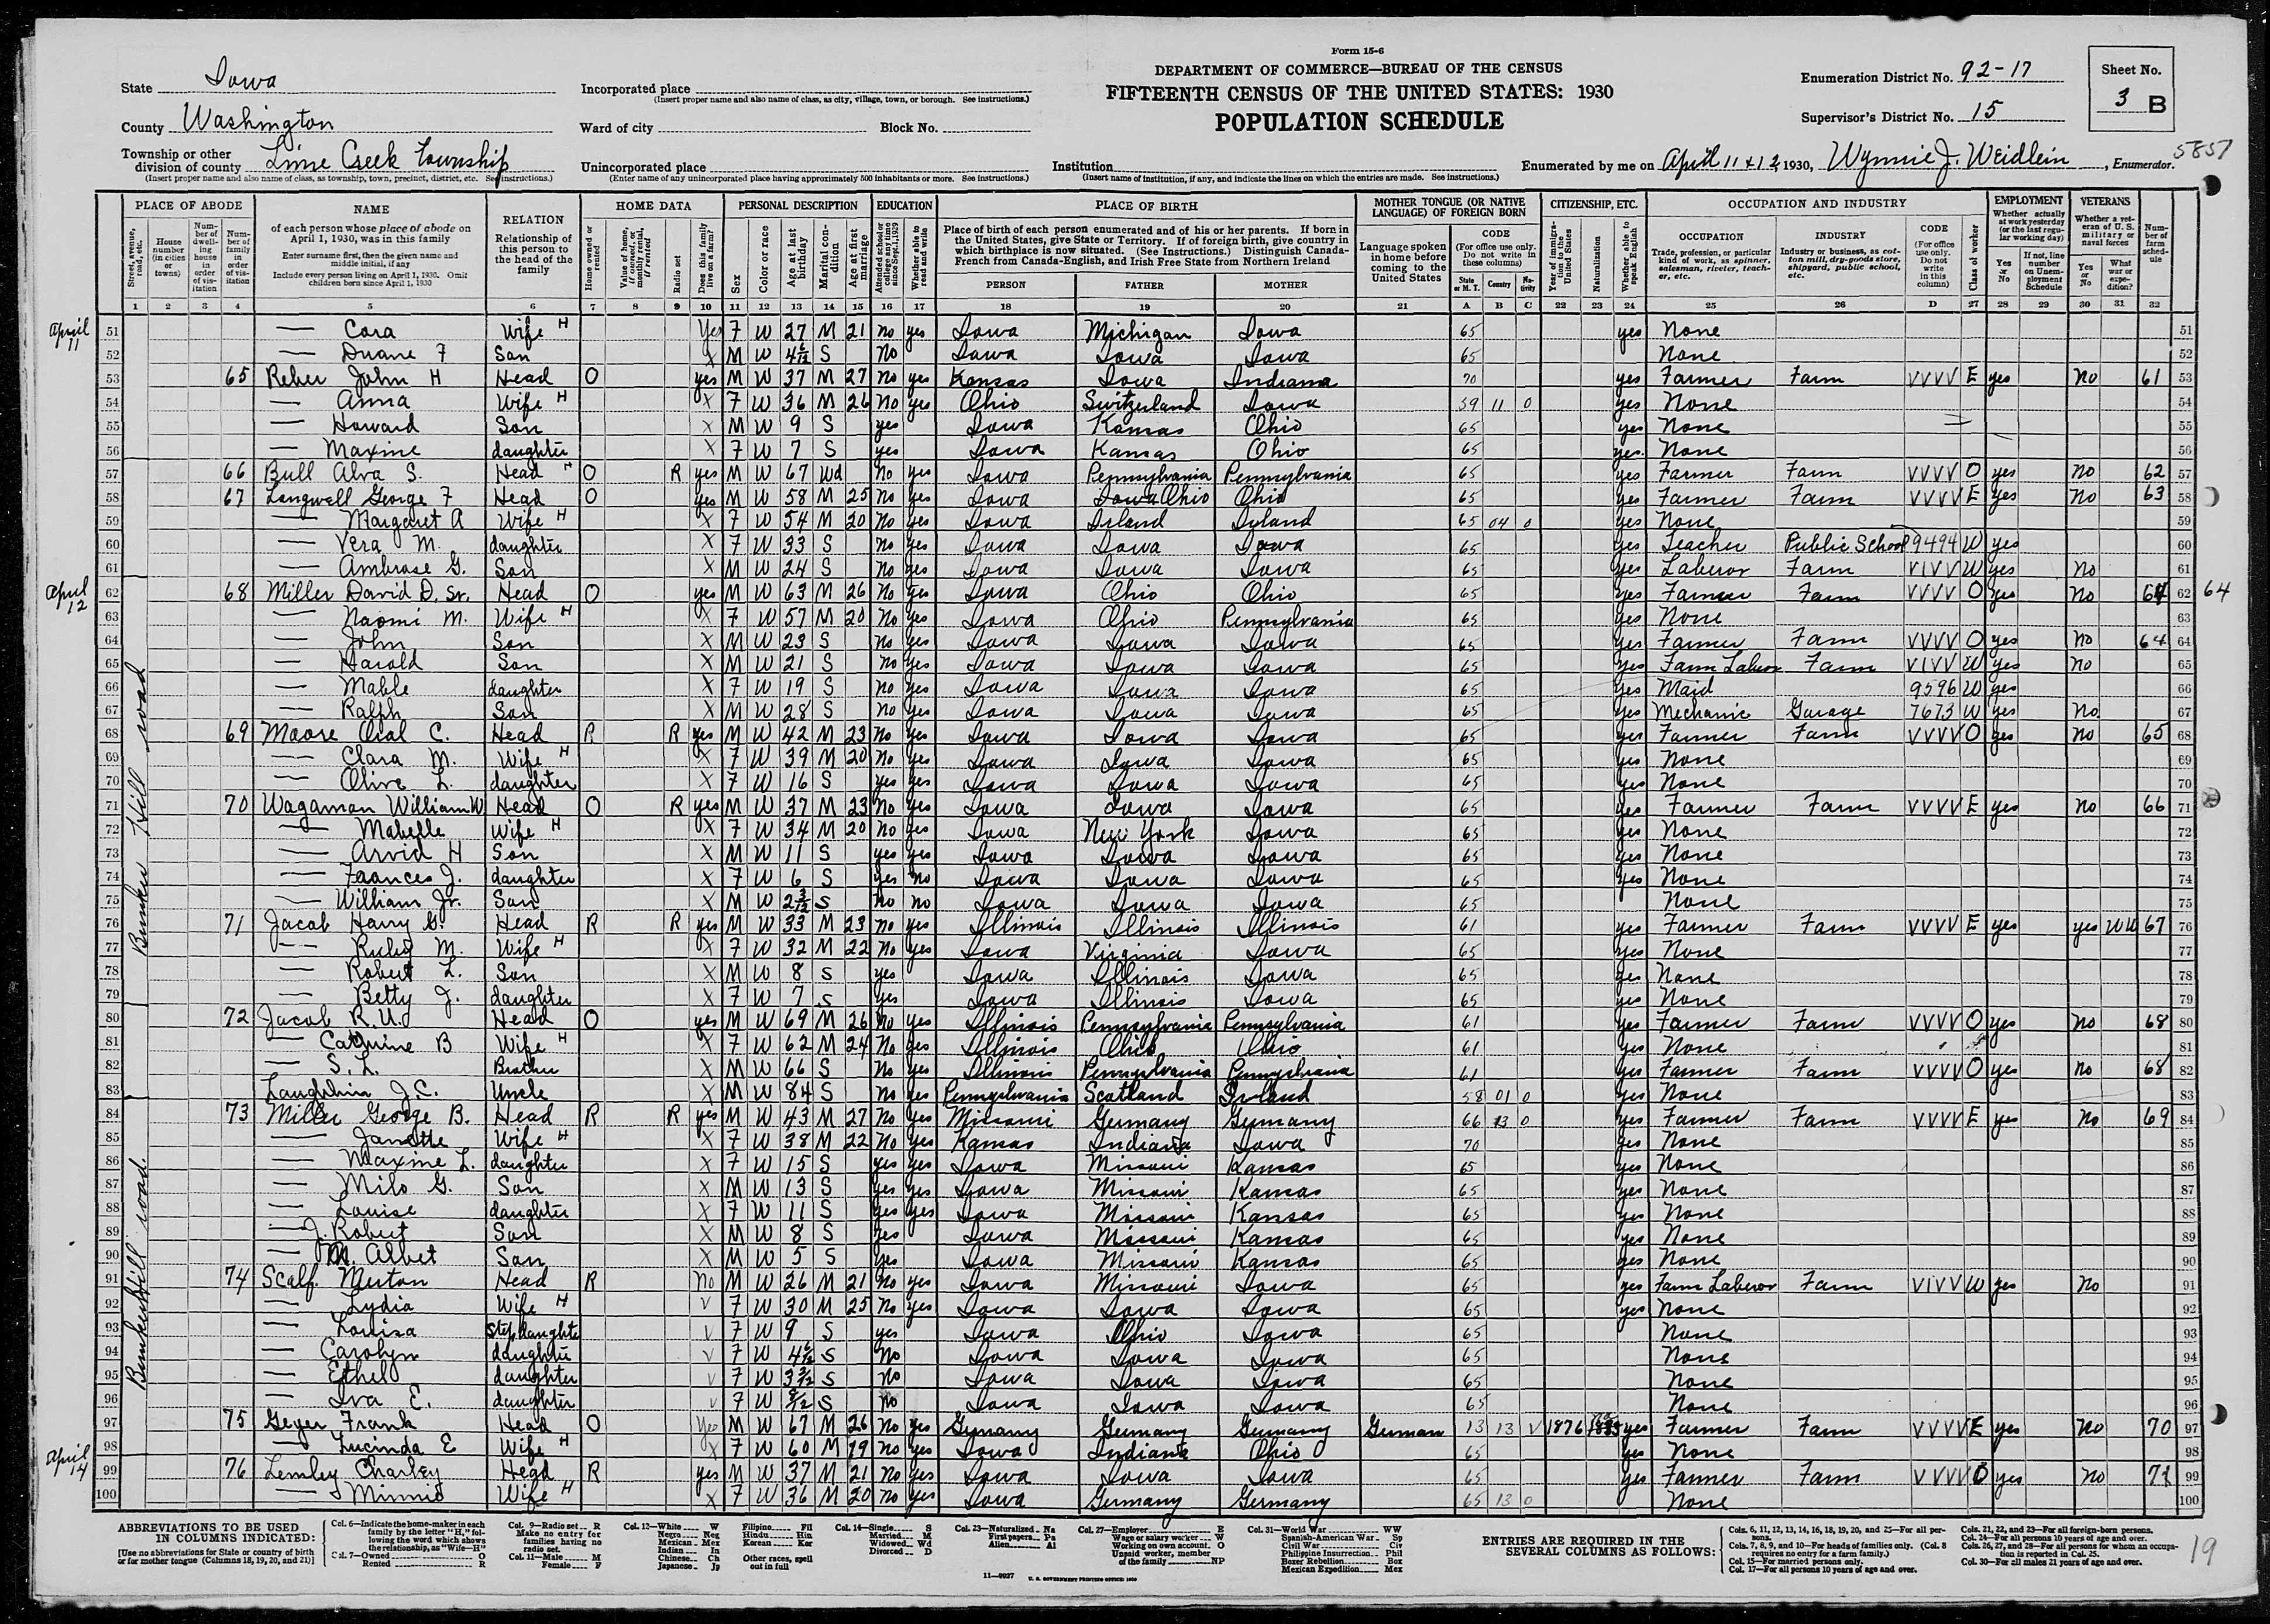 Form 15-6
DEPARTMENT OF COMMERCE—BUREAU OF THE CENSUS
FIFTEENTH CENSUS OF THE UNITED STATES: 1930
POPULATION SCHEDULE
State Iowa
County Washington
Township or other division of county Lime Creek Township
(Insert proper name and also name of class, as township, town, precinct, district, etc. See instructions.)
Incorporated place
(Insert proper name and also name of class, as city, village, town, or borough. See instructions.)
Ward of city Block No.
Unincorporated place
(Enter name of any unincorporated place having approximately 500 inhabitants or more. See instructions.)
Institution
(Insert name of institution, if any, and indicate the lines on which the entries are made. See instructions.)
Enumeration District No. 92-17
Supervisor's District No. 15
Sheet No. 3 B
Enumerated by me on April 11 & 12, 1930, Wynnie J. Weidlein, Enumerator.
5857
PLACE OF ABODE NAME RELATION HOME DATA PERSONAL DESCRIPTION EDUCATION PLACE OF BIRTH MOTHER TONGUE (OR NATIVE LANGUAGE) OF FOREIGN BORN CITIZENSHIP, ETC. OCCUPATION AND INDUSTRY EMPLOYMENT VETERANS
1 2 3 4 5 6 7 8 9 10 11 12 13 14 15 16 17 18 19 20 21 A B C 22 23 24 25 26 D 27 28 29 30 31 32
April 11
51 — Cora Wife H Yes F W 27 M 21 no yes Iowa Michigan Iowa 65 yes None 51
52 — Duane F Son X M W 4 6/12 S No Iowa Iowa Iowa 65 None 52
53 65 Reber John H Head O yes M W 37 M 27 no yes Kansas Iowa Indiana 70 yes Farmer Farm VVVV E yes no 61 53
54 — Anna Wife H X F W 36 M 26 No yes Ohio Switzerland Iowa 59 11 0 yes None 54
55 — Howard Son X M W 9 S yes Iowa Kansas Ohio 65 yes None 55
56 — Maxine daughter X F W 7 S yes Iowa Kansas Ohio 65 yes None 56
57 66 Bull Alva S. Head H O R yes M W 67 Wd no yes Iowa Pennsylvania Pennsylvania 65 yes Farmer Farm VVVV O yes no 62 57
58 67 Longwell George F Head O yes M W 58 M 25 no yes Iowa Ohio Ohio 65 yes Farmer Farm VVVV E yes no 63 58
59 — Margaret A Wife H X F W 54 M 20 No yes Iowa Irland Irland 65 04 0 yes None 59
60 — Vera M. daughter X F W 33 S no yes Iowa Iowa Iowa 65 yes Teacher Public School 9494 W yes 60
61 — Ambrose G. Son X M W 24 S No yes Iowa Iowa Iowa 65 yes Laberor Farm VIVV W yes no 61
April 12
62 68 Miller David D. Sr. Head O yes M W 63 M 26 No yes Iowa Ohio Ohio 65 yes Farmer Farm VVVV O yes no 64 62 64
63 — Naomi M. Wife H X F W 57 M 20 No yes Iowa Ohio Pennsylvania 65 yes None 63
64 — John Son X M W 23 S no yes Iowa Iowa Iowa 65 yes Farmer Farm VVVV O yes no 64 64
65 — Harold Son X M W 21 S no yes Iowa Iowa Iowa 65 yes Farm Laberor Farm VIVV W yes no 65
66 — Mable daughter X F W 19 S no yes Iowa Iowa Iowa 65 yes Maid 9596 W yes 66
67 — Ralph Son X M W 28 S No yes Iowa Iowa Iowa 65 yes Mechanic Garage 7673 W yes No 67
68 69 Moore Oral C. Head R R yes M W 42 M 23 No yes Iowa Iowa Iowa 65 yes Farmer Farm VVVV O yes no 65 68
69 — Clara M. Wife H X F W 39 M 20 no yes Iowa Iowa Iowa 65 yes None 69
70 — Olive L. daughter X F W 16 S yes yes Iowa Iowa Iowa 65 yes None 70
71 70 Wagaman William W Head O R yes M W 37 M 23 no yes Iowa Iowa Iowa 65 yes Farmer Farm VVVV E yes no 66 71
72 — Mabelle Wife H X F W 34 M 20 no yes Iowa New York Iowa 65 yes None 72
73 — Arvid H Son X M W 11 S yes yes Iowa Iowa Iowa 65 yes None 73
74 — Frances J. daughter X F W 6 S yes no Iowa Iowa Iowa 65 yes None 74
75 — William Jr. Son X M W 2 3/12 S no no Iowa Iowa Iowa 65 None 75
Bunker Hill road
76 71 Jacob Harry G. Head R R yes M W 33 M 23 no yes Illinois Illinois Illinois 61 yes Farmer Farm VVVV E yes yes WW 67 76
77 — M. Wife H X F W 32 M 22 No yes Iowa Virginia Iowa 65 yes None 77
78 — Robert L. Son X M W 8 S yes Iowa Illinois Iowa 65 yes None 78
79 — Betty J. daughter X F W 7 S yes Iowa Illinois Iowa 65 yes None 79
80 72 Jacob R.U. Head O yes M W 69 M 26 No yes Illinois Pennsylvania Pennsylvania 61 yes Farmer Farm VVVV O yes no 68 80
81 — Cathrine B Wife H X F W 62 M 24 No yes Illinois Ohio Ohio 61 yes None 81
82 — S. L. Brother X M W 66 S No yes Illinois Pennsylvania Pennsylvania 61 yes Farmer Farm VVVV O yes no 68 82
83 Laughlin J.C. Uncle X M W 84 S No yes Pennsylvania Scotland Irland 58 01 0 yes None 83
84 73 Miller George B. Head R R yes M W 43 M 27 No yes Missouri Germany Germany 66 13 0 yes Farmer Farm VVVV E yes No 69 84
85 — Janette Wife H X F W 38 M 22 No yes Kansas Indiana Iowa 70 yes None 85
86 — Maxine L. daughter X F W 15 S yes yes Iowa Missouri Kansas 65 yes None 86
87 — Milo G. Son X M W 13 S yes yes Iowa Missouri Kansas 65 yes None 87
88 — Louise daughter X F W 11 S yes yes Iowa Missouri Kansas 65 yes None 88
89 — J. Robert Son X M W 8 S yes Iowa Missouri Kansas 65 yes None 89
90 — M. Albert Son X M W 5 S yes Iowa Missouri Kansas 65 yes None 90
91 74 Scalf Merton Head R No M W 26 M 21 No yes Iowa Missouri Iowa 65 yes Farm Laberor Farm VIVV W yes No 91
92 — Lydia Wife H V F W 30 M 25 No yes Iowa Iowa Iowa 65 yes None 92
93 — Louisa Step daughter V F W 9 S yes Iowa Ohio Iowa 65 None 93
94 — Carolyn daughter V F W 4 S No Iowa Iowa Iowa 65 None 94
95 — Ethel daughter V F W 3 S no Iowa Iowa Iowa 65 None 95
96 — Iva E. daughter V F W S no Iowa Iowa Iowa 65 None 96
Bunkerhill road.
97 75 Geyer Frank Head O Yes M W 67 M 26 No yes Germany Germany Germany German 13 13 V 1876 yes Farmer Farm VVVV E yes No 70 97
98 — Lucinda E Wife H X F W 60 M 19 no yes Iowa Indiana Ohio 65 yes None 98
April 14
99 76 Lemley Charley Head R yes M W 37 M 21 No yes Iowa Iowa Iowa 65 yes Farmer Farm VVVV O yes no 71 99
100 — Minnie Wife H X F W 36 M 20 no yes Iowa Germany Germany 65 13 0 None 100
ABBREVIATIONS TO BE USED IN COLUMNS INDICATED:
[Use no abbreviations for State or country of birth or for mother tongue (Columns 18, 19, 20, and 21)]
Col. 6—Indicate the home-maker in each family by the letter "H," following the word which shows the relationship, as "Wife—H"
Col. 7—Owned O Rented R
Col. 9—Radio set R Make no entry for families having no radio set.
Col. 11—Male M Female F
Col. 12—White W Negro Neg Mexican Mex Indian In Chinese Ch Japanese Jp Filipino Fil Hindu Hin Korean Kor Other races, spell out in full
Col. 14—Single S Married M Widowed Wd Divorced D
Col. 23—Naturalized Na First papers Pa Alien Al
Col. 27—Employer E Wage or salary worker W Working on own account O Unpaid worker, member of the family NP
Col. 31—World War WW Spanish-American War Sp Civil War Civ Philippine Insurrection Phil Boxer Rebellion Box Mexican Expedition Mex
ENTRIES ARE REQUIRED IN THE SEVERAL COLUMNS AS FOLLOWS:
Cols. 6, 11, 12, 13, 14, 16, 18, 19, 20, and 25—For all persons.
Cols. 7, 8, 9, and 10—For heads of families only. (Col. 8 requires no entry for a farm family.)
Col. 15—For married persons only.
Col. 17—For all persons 10 years of age and over.
Cols. 21, 22, and 23—For all foreign-born persons.
Col. 24—For all persons 10 years of age and over.
Cols. 26, 27, and 28—For all persons for whom an occupation is reported in Col. 25.
Col. 30—For all males 21 years of age and over.
11—9927 U. S. GOVERNMENT PRINTING OFFICE: 1930
19